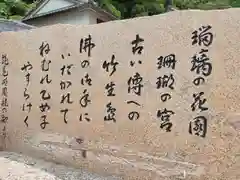 瑠璃の花園
珊瑚の宮
古い傳への
竹生島
佛の御手に
いだかれて
ねむれ乙女子
やすらけく